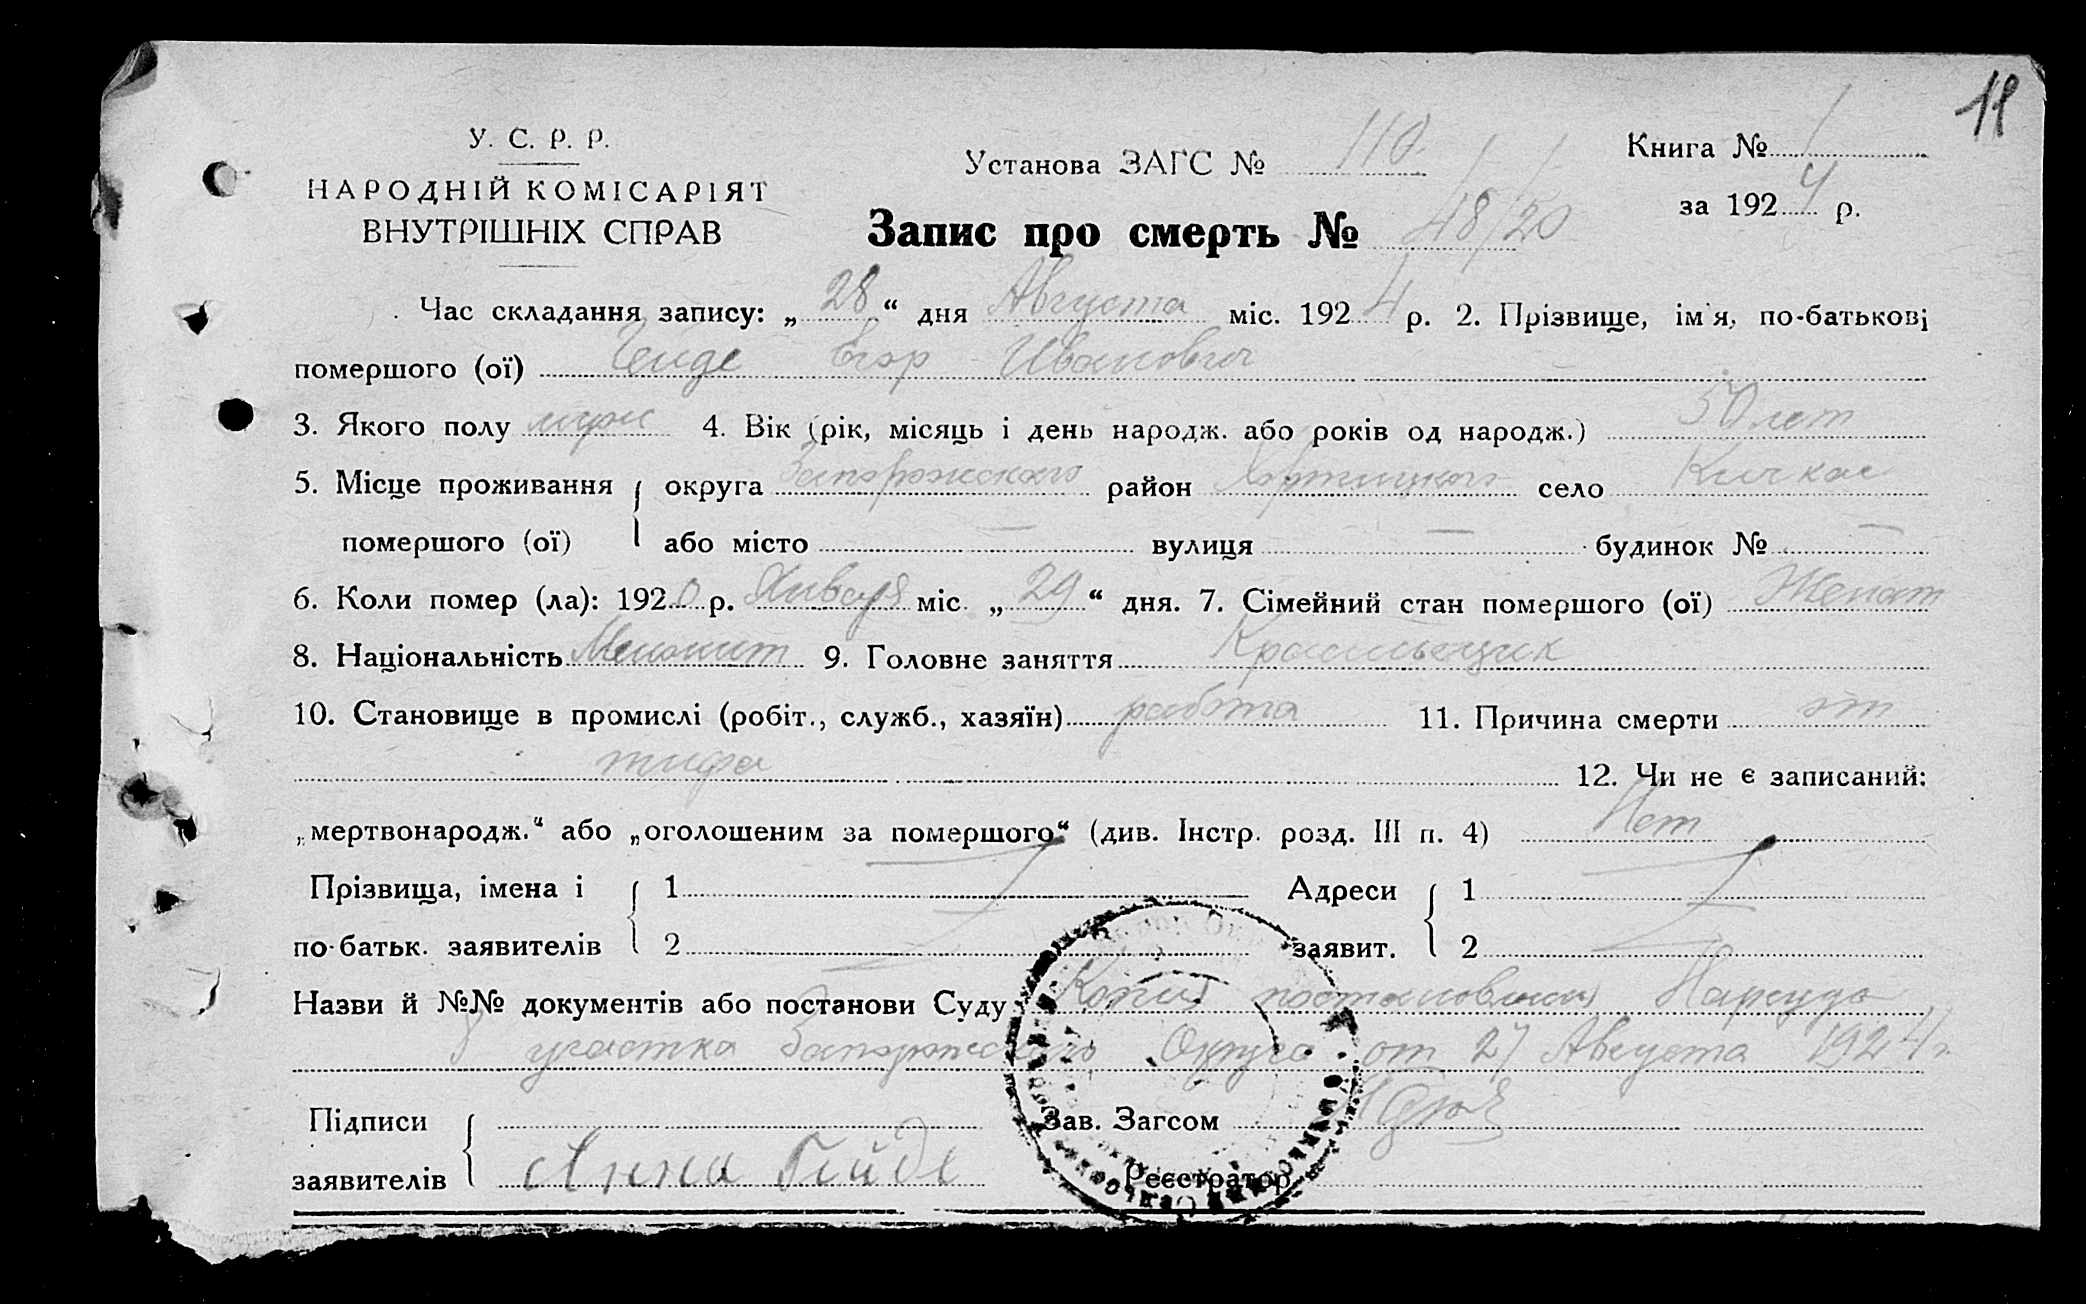 11
У. С. Р. Р.
НАРОДНІЙ КОМІСАРІЯТ
ВНУТРІШНІХ СПРАВ
Установа ЗАГС № 110
Книга № 1
за 1924 р.
Запис про смерть № 48/20
Час складання запису: „28“ дня Августа міс. 1924 р. 2. Прізвище, ім'я, по-батькові
помершого (ої) Гейде Егор Иванович
3. Якого полу муж 4. Вік (рік, місяць і день народж. або років од народж.) 50 лет
5. Місце проживання округа Запорожского район Хортицкого село Кичкас
помершого (ої) або місто — вулиця — будинок № —
6. Коли помер (ла): 1920 р. Января міс. „29“ дня. 7. Сімейний стан помершого (ої) Женат
8. Національність Менонит 9. Головне заняття Красильщик
10. Становище в промислі (робіт., служб., хазяїн) работа 11. Причина смерти от
тифа 12. Чи не є записаний:
„мертвонародж.“ або „оголошеним за помершого“ (див. Інстр. розд. III п. 4) Нет
Прізвища, імена і 1 Адреси 1
по-батьк. заявителів 2 заявит. 2
Назви й №№ документів або постанови Суду Копия постановления Нарсуда
8 участка Запорожского Округа от 27 Августа 1924 г.
Підписи Зав. Загсом
заявителів Анна Гейде Реєстратор